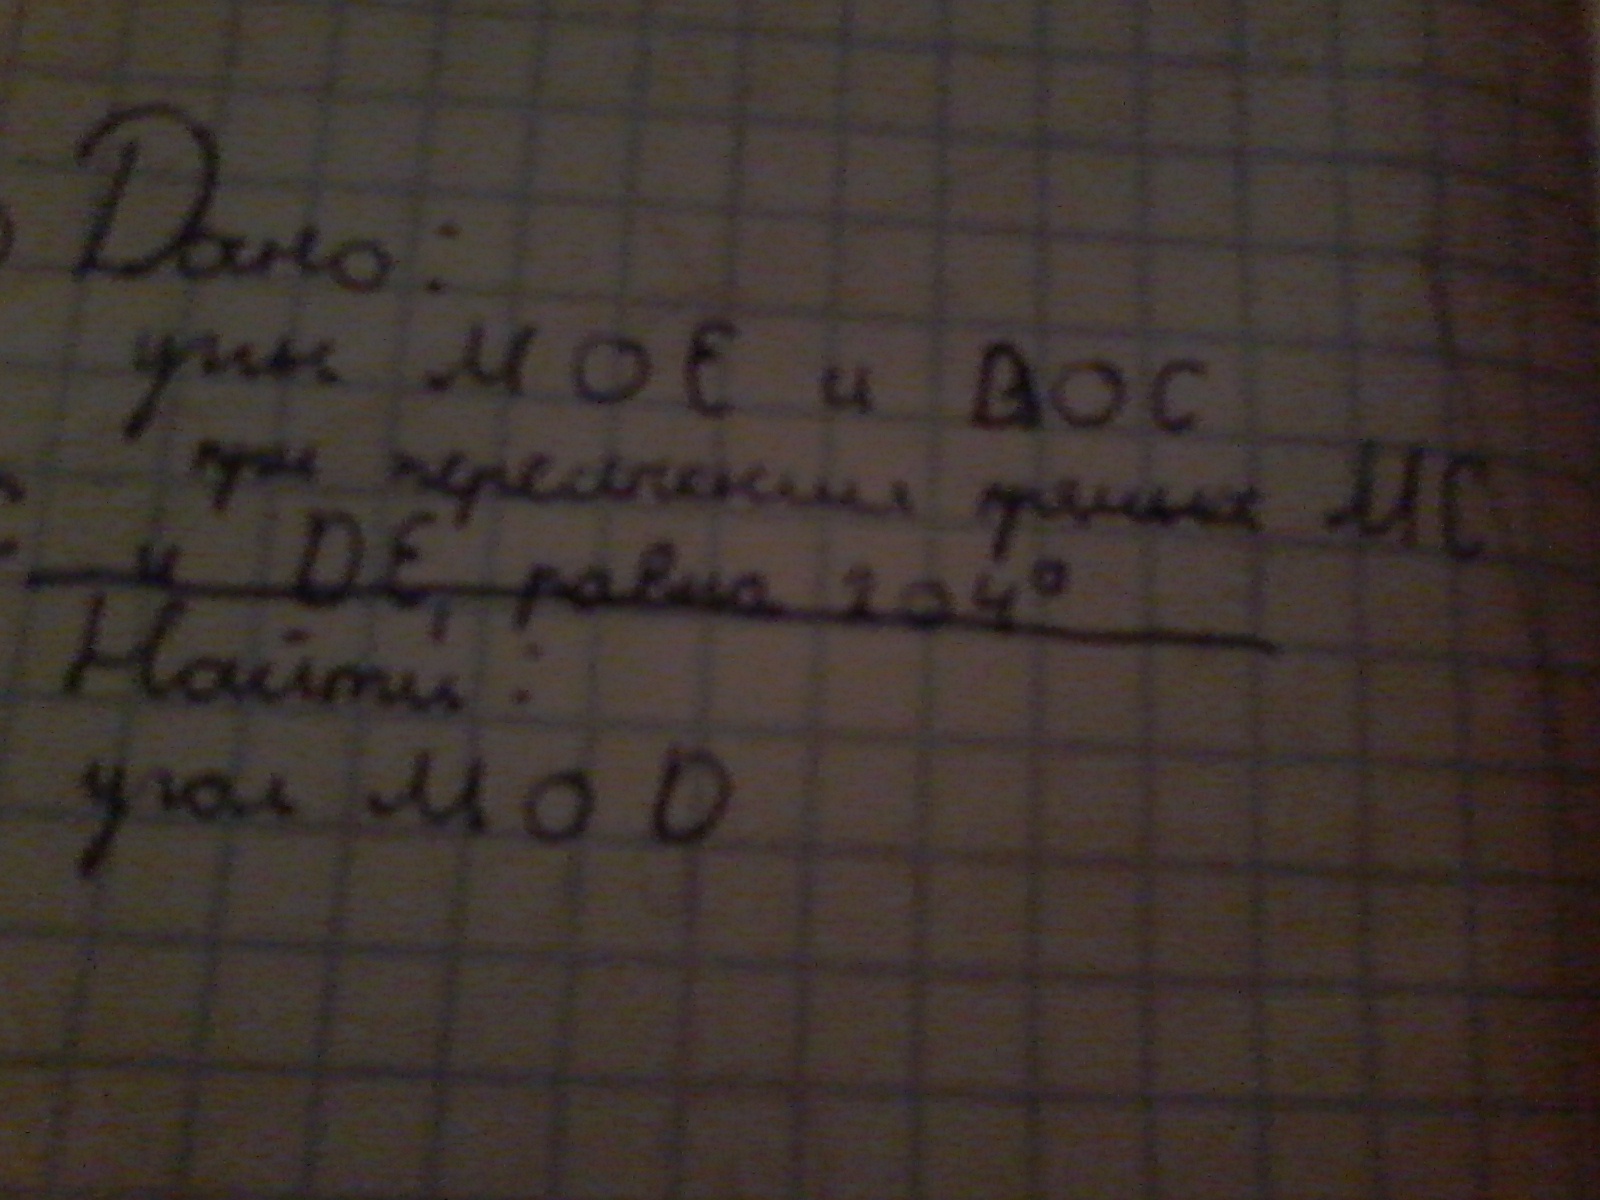 Дано:
углы MOE и DOC
при пересечении прямых MC
и DE, равна 204°
Найти:
угол MOD